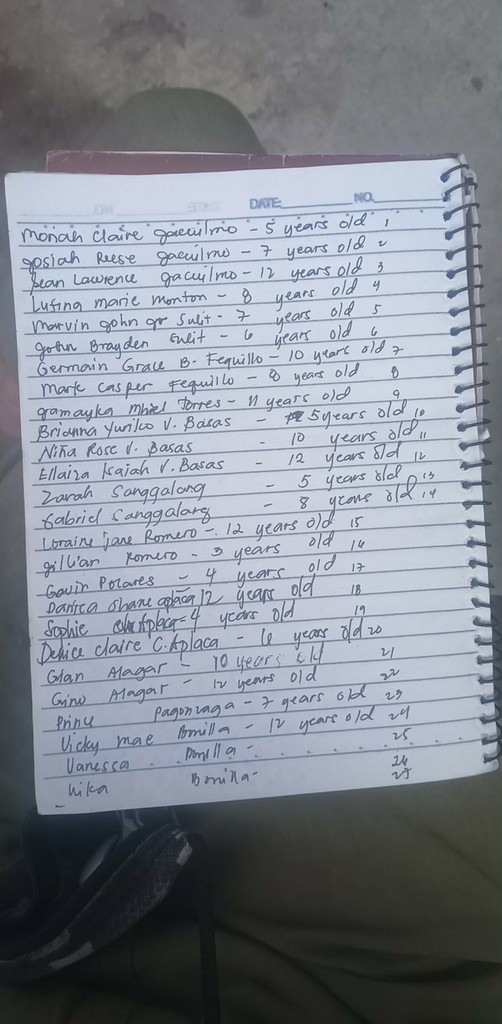 DATE NO.
Moriah Claire Gacuilmo - 5 years old 1
Josiah Reese Gacuilmo - 7 years old 2
Sean Lawrence gacuilmo - 12 years old 3
Lufina marie monton - 8 years old 4
Marvin John Sulit - 7 years old 5
John Brayden Sulit - 6 years old 6
Germain Grace B. Fequillo - 10 years old 7
Mark Casper Fequillo - 8 years old 8
gramayka Mhiel Torres - 11 years old 9
Brianna Yuriko V. Basas - 5 years old 10
Niña Rose V. Basas - 10 years old 11
Ellaiza Isaiah V. Basas - 12 years old 12
Zarah Sanggalang - 5 years old 13
Gabriel Sanggalang - 8 years old 14
Loraine jane Romero - 12 years old 15
gillian Romero - 3 years old 16
Gavin Polares - 4 years old 17
Danica Shane aplaca 12 years old 18
Sophie Aplaca - 4 years old 19
Denice Claire C. Aplaca - 6 years old 20
Glan Alagar - 10 years old 21
Gino Alagar - 12 years old 22
Prince Pagonzaga - 7 years old 23
Vicky mae Bonilla - 12 years old 24
Vanessa Bonilla - 25
26
Bonilla - 27